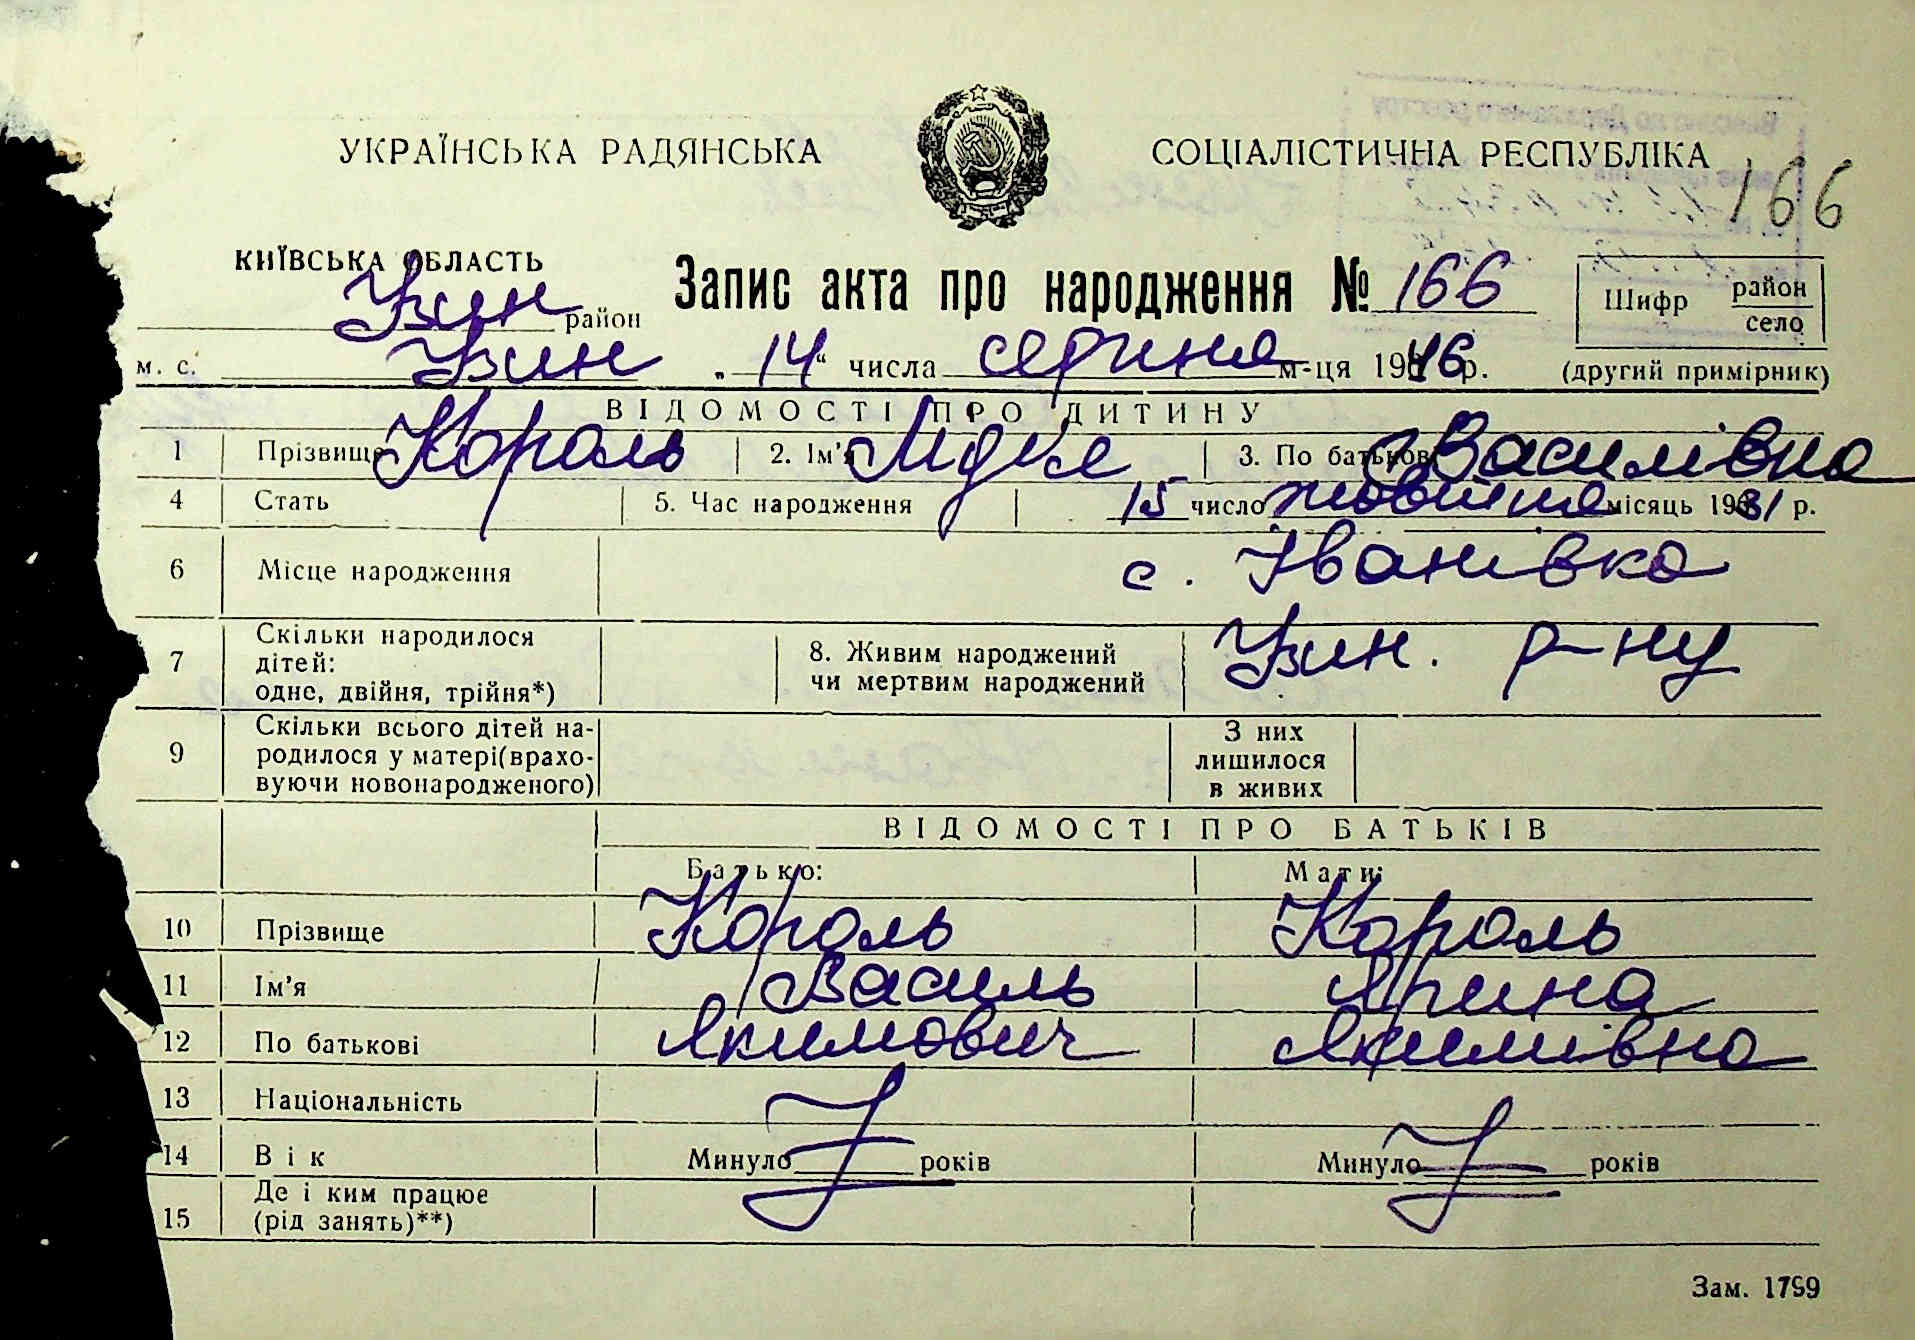 УКРАЇНСЬКА РАДЯНСЬКА СОЦІАЛІСТИЧНА РЕСПУБЛІКА
166
КИЇВСЬКА ОБЛАСТЬ
Запис акта про народження № 166
Шифр район село
Узин район
м. с. Узин „14“ числа серпня м-ця 1946 р. (другий примірник)
ВІДОМОСТІ ПРО ДИТИНУ
1 Прізвище Король 2. Ім'я Лідія 3. По батькові Василівна
4 Стать 5. Час народження 15 число жовтня місяць 1931 р.
6 Місце народження с. Іванівка
Узин. р-ну
7 Скільки народилося
дітей:
одне, двійня, трійня*)
8. Живим народжений
чи мертвим народжений
9 Скільки всього дітей на-
родилося у матері(врахо-
вуючи новонародженого)
З них
лишилося
в живих
ВІДОМОСТІ ПРО БАТЬКІВ
Батько: Мати:
10 Прізвище Король Король
11 Ім'я Василь Ярина
12 По батькові Якимович Якимівна
13 Національність
14 Вік Минуло років Минуло років
15 Де і ким працює
(рід занять)**)
Зам. 1799